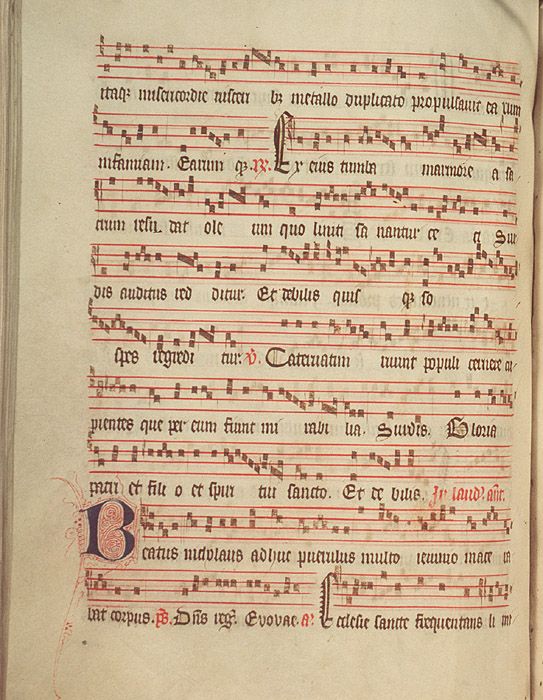 itaqꝫ misericordie visceri bꝫ metallo duplicato propulsavit ea rum
infamiam. Earum qꝫ. R. Ex eius tumba marmore a sa
crum resu dat ole um quo liniti sa nantur ce ci Sur
dis auditus red ditur. Et debilis quis qꝫ so
spes regredi tur. V. Catervatim ruunt populi cernere cu
pientes que per eum fiunt mi rabi lia. Surdis. Gloria
patri et fili o et spiri tui sancto. Et de bilis. In laud. ant.
Beatus nicholaus adhuc puerulus multo ieiunio mace ra
bat corpus. ps. Dns reg. Evovae. a. Ecclesie sancte frequentans li mi